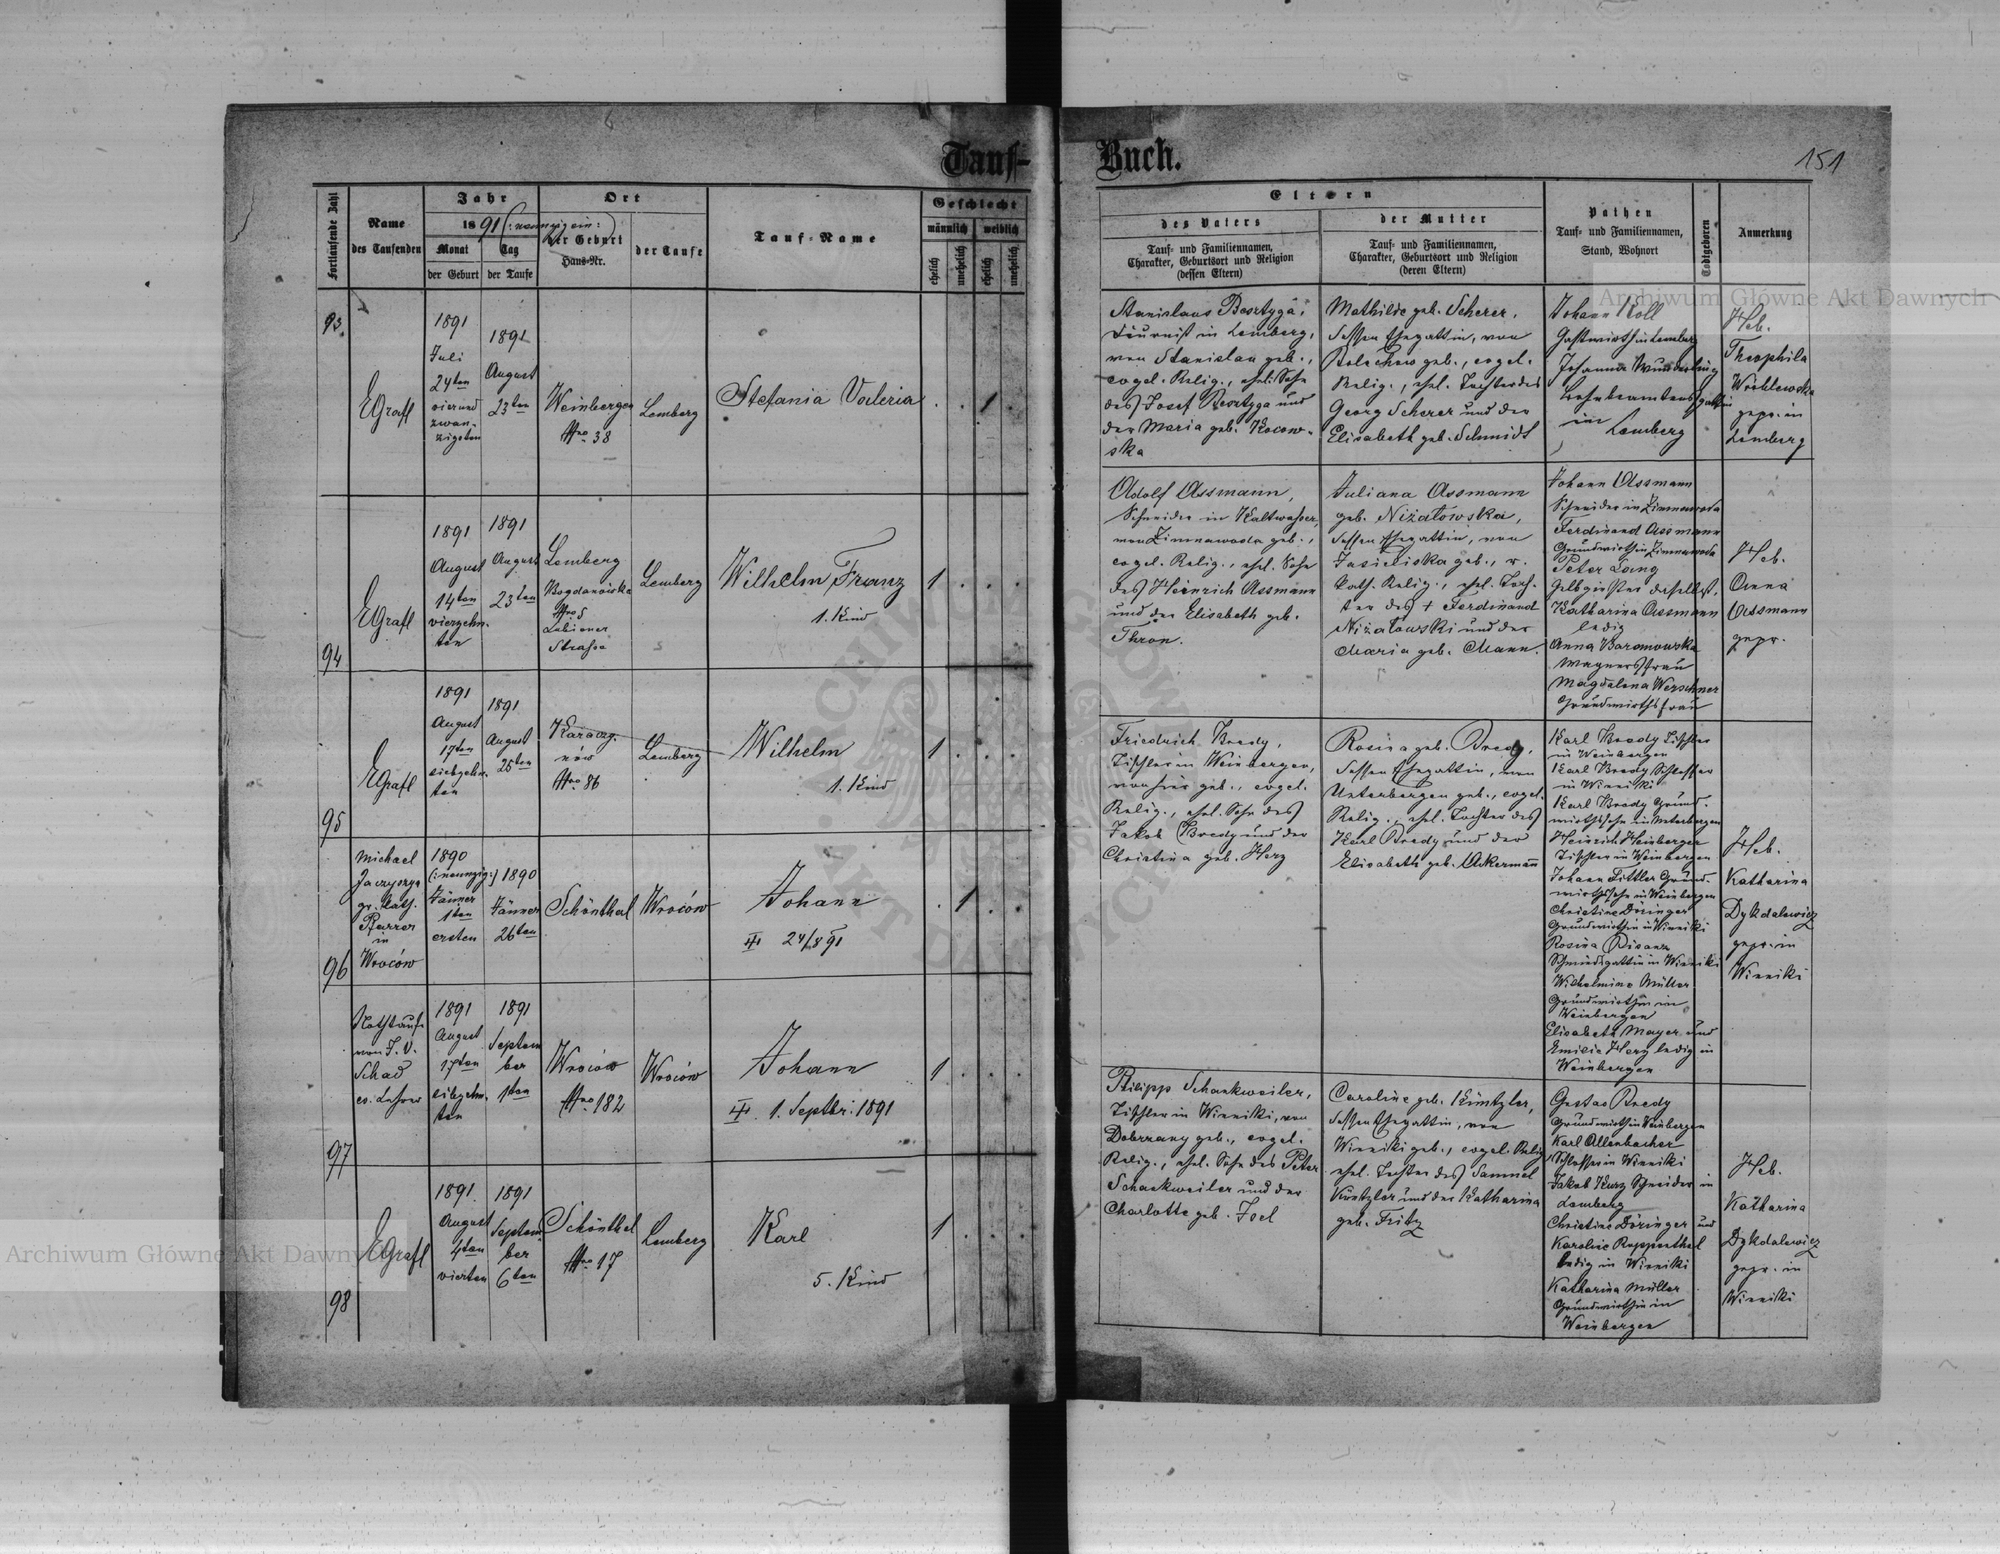 Tauf-
Fortlaufende Zahl
Name
des Taufenden
Jahr
1891 (:neunzig ein:)
Monat
Tag
der Geburt
der Taufe
Ort
der Geburt
Haus-Nr.
der Taufe
Tauf-Name
Geschlecht
männlich
weiblich
ehelich
unehelich
ehelich
unehelich
93.
EGrafl
1891
Juli
24ten
vierund
zwan-
zigsten
1891
August
23ten
Weinbergen
Nro 38
Lemberg
Stefania Valeria
1
94
EGrafl
1891
August
14ten
vierzehn-
ten
1891
August
23ten
Lemberg
Bogdanówka
Nro 5
Lubiener
Strasse
Lemberg
Wilhelm Franz
1. Kind
1
95
EGrafl
1891
August
17ten
siebzehn-
ten
1891
August
25ten
Nro 86
Lemberg
Wilhelm
1. Kind
1
96
Michael
gr. kath.
Pfarrer
in
Wroców
1890
(:neunzig:)
Jänner
1ten
ersten
1890
Jänner
26ten
Schönthal
Wroców
Johann
24/8 91
1
97
Nothtaufe
von J. V.
Schad
ev. Lehrer
1891
August
17ten
siebzehn-
ten
1891
Septem
ber
1ten
Wroców
Nro 182
Wroców
Johann
1. Septbr: 1891
1
98
EGrafl
1891
August
4ten
vierten
1891
Septem-
ber
6ten
Schönthal
Nro 17
Lemberg
Karl
5. Kind
1
Buch.
151
Eltern
des Vaters
Tauf- und Familiennamen,
Charakter, Geburtsort und Religion
(dessen Eltern)
der Mutter
Tauf- und Familiennamen,
Charakter, Geburtsort und Religion
(deren Eltern)
Pathen
Tauf- und Familiennamen,
Stand, Wohnort
Todtgeboren
Anmerkung
Stanislaus
in Lemberg,
von Stanislau geb.,
evgel. Relig., ehel. Sohn
des Josef und
der Maria geb. Kocow-
ska
Mathilde geb. Scherer,
dessen Ehegattin, von
Bolechow geb., evgel.
Relig., ehel. Tochter des
Georg Scherer und der
Elisabeth geb. Schmidt
Johann Koll
Gastwirth in Lemberg
Johanna Wunderling
Bahnbeamtensgattin
in
Lemberg
Heb.
Theophila
Wróblewska
gepr. in
Lemberg
Adolf Assmann,
Schneider in Kaltwasser,
von Zimnawoda geb.,
evgel. Relig., ehel. Sohn
des Heinrich Assmann
und der Elisabeth geb.
Thron.
Juliana Assmann
geb. Niżałowska,
dessen Ehegattin, von
Jasieliska geb., r.
kath. Relig., ehel. Toch-
ter des + Ferdinand
Niżałowski und der
Maria geb. Mann.
Johann Assmann
Schneider in Zimnawoda
Ferdinand Assmann
Grundwirth in Zimnawoda
Peter Lang
Gelbgiesser daselbst,
Katharina Assmann
ledig
Anna Baronowska
Wagnersfrau
Magdalena Werschner
Grundwirthsfrau
Heb.
Anna
Assmann
gepr.
Friedrich Bredy,
Tischler in Weinbergen,
von hier geb., evgel.
Relig., ehel. Sohn des
Jakob Bredy und der
Christina geb. Herz
Rosina geb. Bredy,
dessen Ehegattin, von
Unterbergen geb., evgel.
Relig., ehel. Tochter des
Karl Bredy und der
Elisabeth geb. Ackermann
Karl Bredy Tischler
in Weinbergen
Karl Bredy Schlosser
in Winniki
Karl Bredy Grund-
wirthssohn in Unterbergen
Heinrich Heuberger
Tischler in Weinbergen
Johann Grund-
wirthssohn in Weinbergen
Christine Döringer
Grundwirthin in Winniki
Rosina
Schmiedsgattin in Winniki
Wilhelmine Müller
Grundwirthin in
Weinbergen
Elisabeth Mayer und
Emilie Herz ledig in
Weinbergen
Heb.
Katharina
Dykdalewicz
gepr. in
Winniki
Philipp Schankweiler,
Tischler in Winniki, von
Dobrzany geb., evgel.
Relig., ehel. Sohn des Peter
Schankweiler und der
Charlotte geb. Joel
Caroline geb. Küntzler,
dessen Ehegattin, von
Winniki geb., evgel. Relig.
ehel. Tochter des Samuel
Küntzler und der Katharina
geb. Fritz
Gustav Bredy
Grundwirth in Weinbergen
Karl Allenbacher
Schlosser in Winniki
Jakob Kurz Schneider in
Lemberg
Christine Döringer und
Karoline Rupperthal
ledig in Winniki
Katharina Müller
Grundwirthin in
Weinbergen
Heb.
Katharina
Dykdalewicz
gepr. in
Winniki
Archiwum Główne Akt Dawnych
Archiwum Główne Akt Dawnych